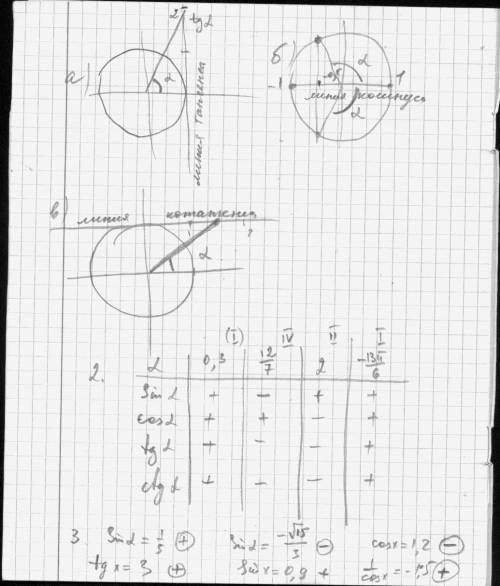 2 tg α
а) α
линия тангенса
б) α
-1 1
линия косинуса
α
в) линия котангенса
α
(I) IV II I
2. α 0,3 12/7 2 -13π/6
sin α + - + +
cos α + + - +
tg α + - - +
ctg α + - - +
3. sin α = 1/5 + sin α = -√15/3 - cos x = 1,2 -
tg x = 3 + sin x = 0,9 + 1/cos x = -1,5 +